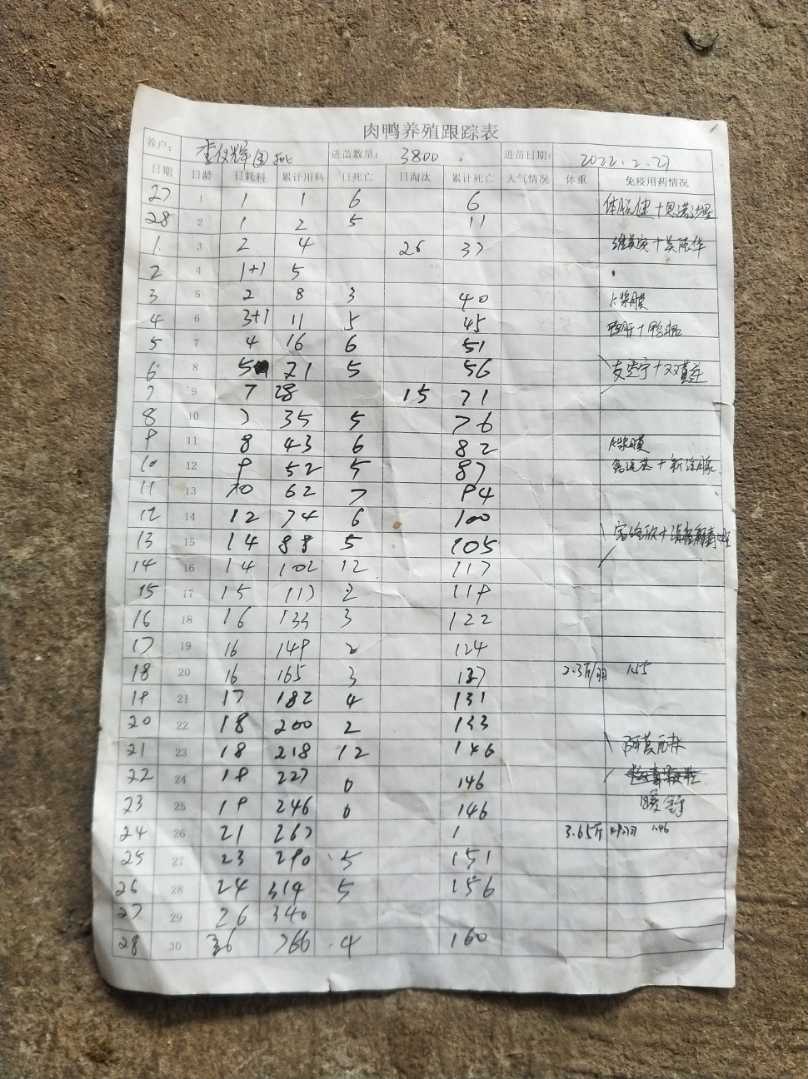 肉鸭养殖跟踪表
养户： 进苗数量： 3800 进苗日期： 2022.2.27
日期 日龄 日耗料 累计用料 日死亡 日淘汰 累计死亡 天气情况 体重 免疫用药情况
27 1 1 1 6 6
28 2 1 2 5 11
1 3 2 4 26 37
2 4 1+1 5
3 5 2 8 3 40
4 6 3+1 11 5 45
5 7 4 16 6 51
6 8 5 21 5 56
7 9 7 28 15 71
8 10 7 35 5 76
9 11 8 43 6 82
10 12 9 52 5 87
11 13 10 62 7 94
12 14 12 74 6 100
13 15 14 88 5 105
14 16 14 102 12 117
15 17 15 117 2 119
16 18 16 133 3 122
17 19 16 149 2 124
18 20 16 165 3 127 2.3斤/羽 1.55
19 21 17 182 4 131
20 22 18 200 2 133
21 23 18 218 12 146
22 24 19 227 0 146
23 25 19 246 0 146
24 26 21 267 1 3.65斤 1.46
25 27 23 290 5 151
26 28 24 314 5 156
27 29 26 340
28 30 26 366 4 160